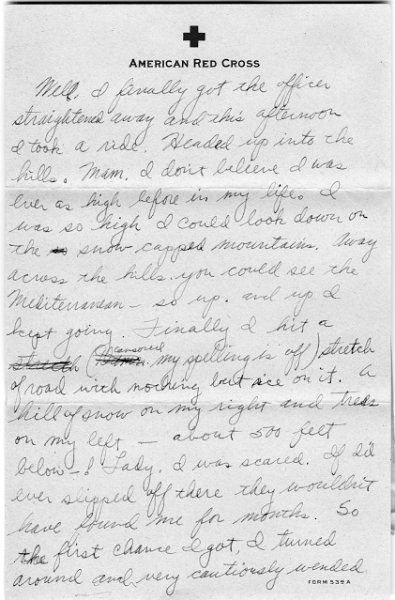 AMERICAN RED CROSS
Well, I finally got the officer
straightened away and this afternoon
I took a ride. Headed up into the
hills. Mam, I don't believe I was
ever as high before in my life. I
was so high I could look down on
the snow capped mountains. Away
across the hills you could see the
Mediterranean - so up. and up I
kept going. Finally I hit a
stretch (censored my spelling is off) stretch
of road with nothing but ice on it. A
hill of snow on my right and trees
on my left, - about 500 feet
below - ! Lady, I was scared. If I'd
ever slipped off there they wouldn't
have found me for months. So
the first chance I got, I turned
around and very cautiously wended
FORM 539A